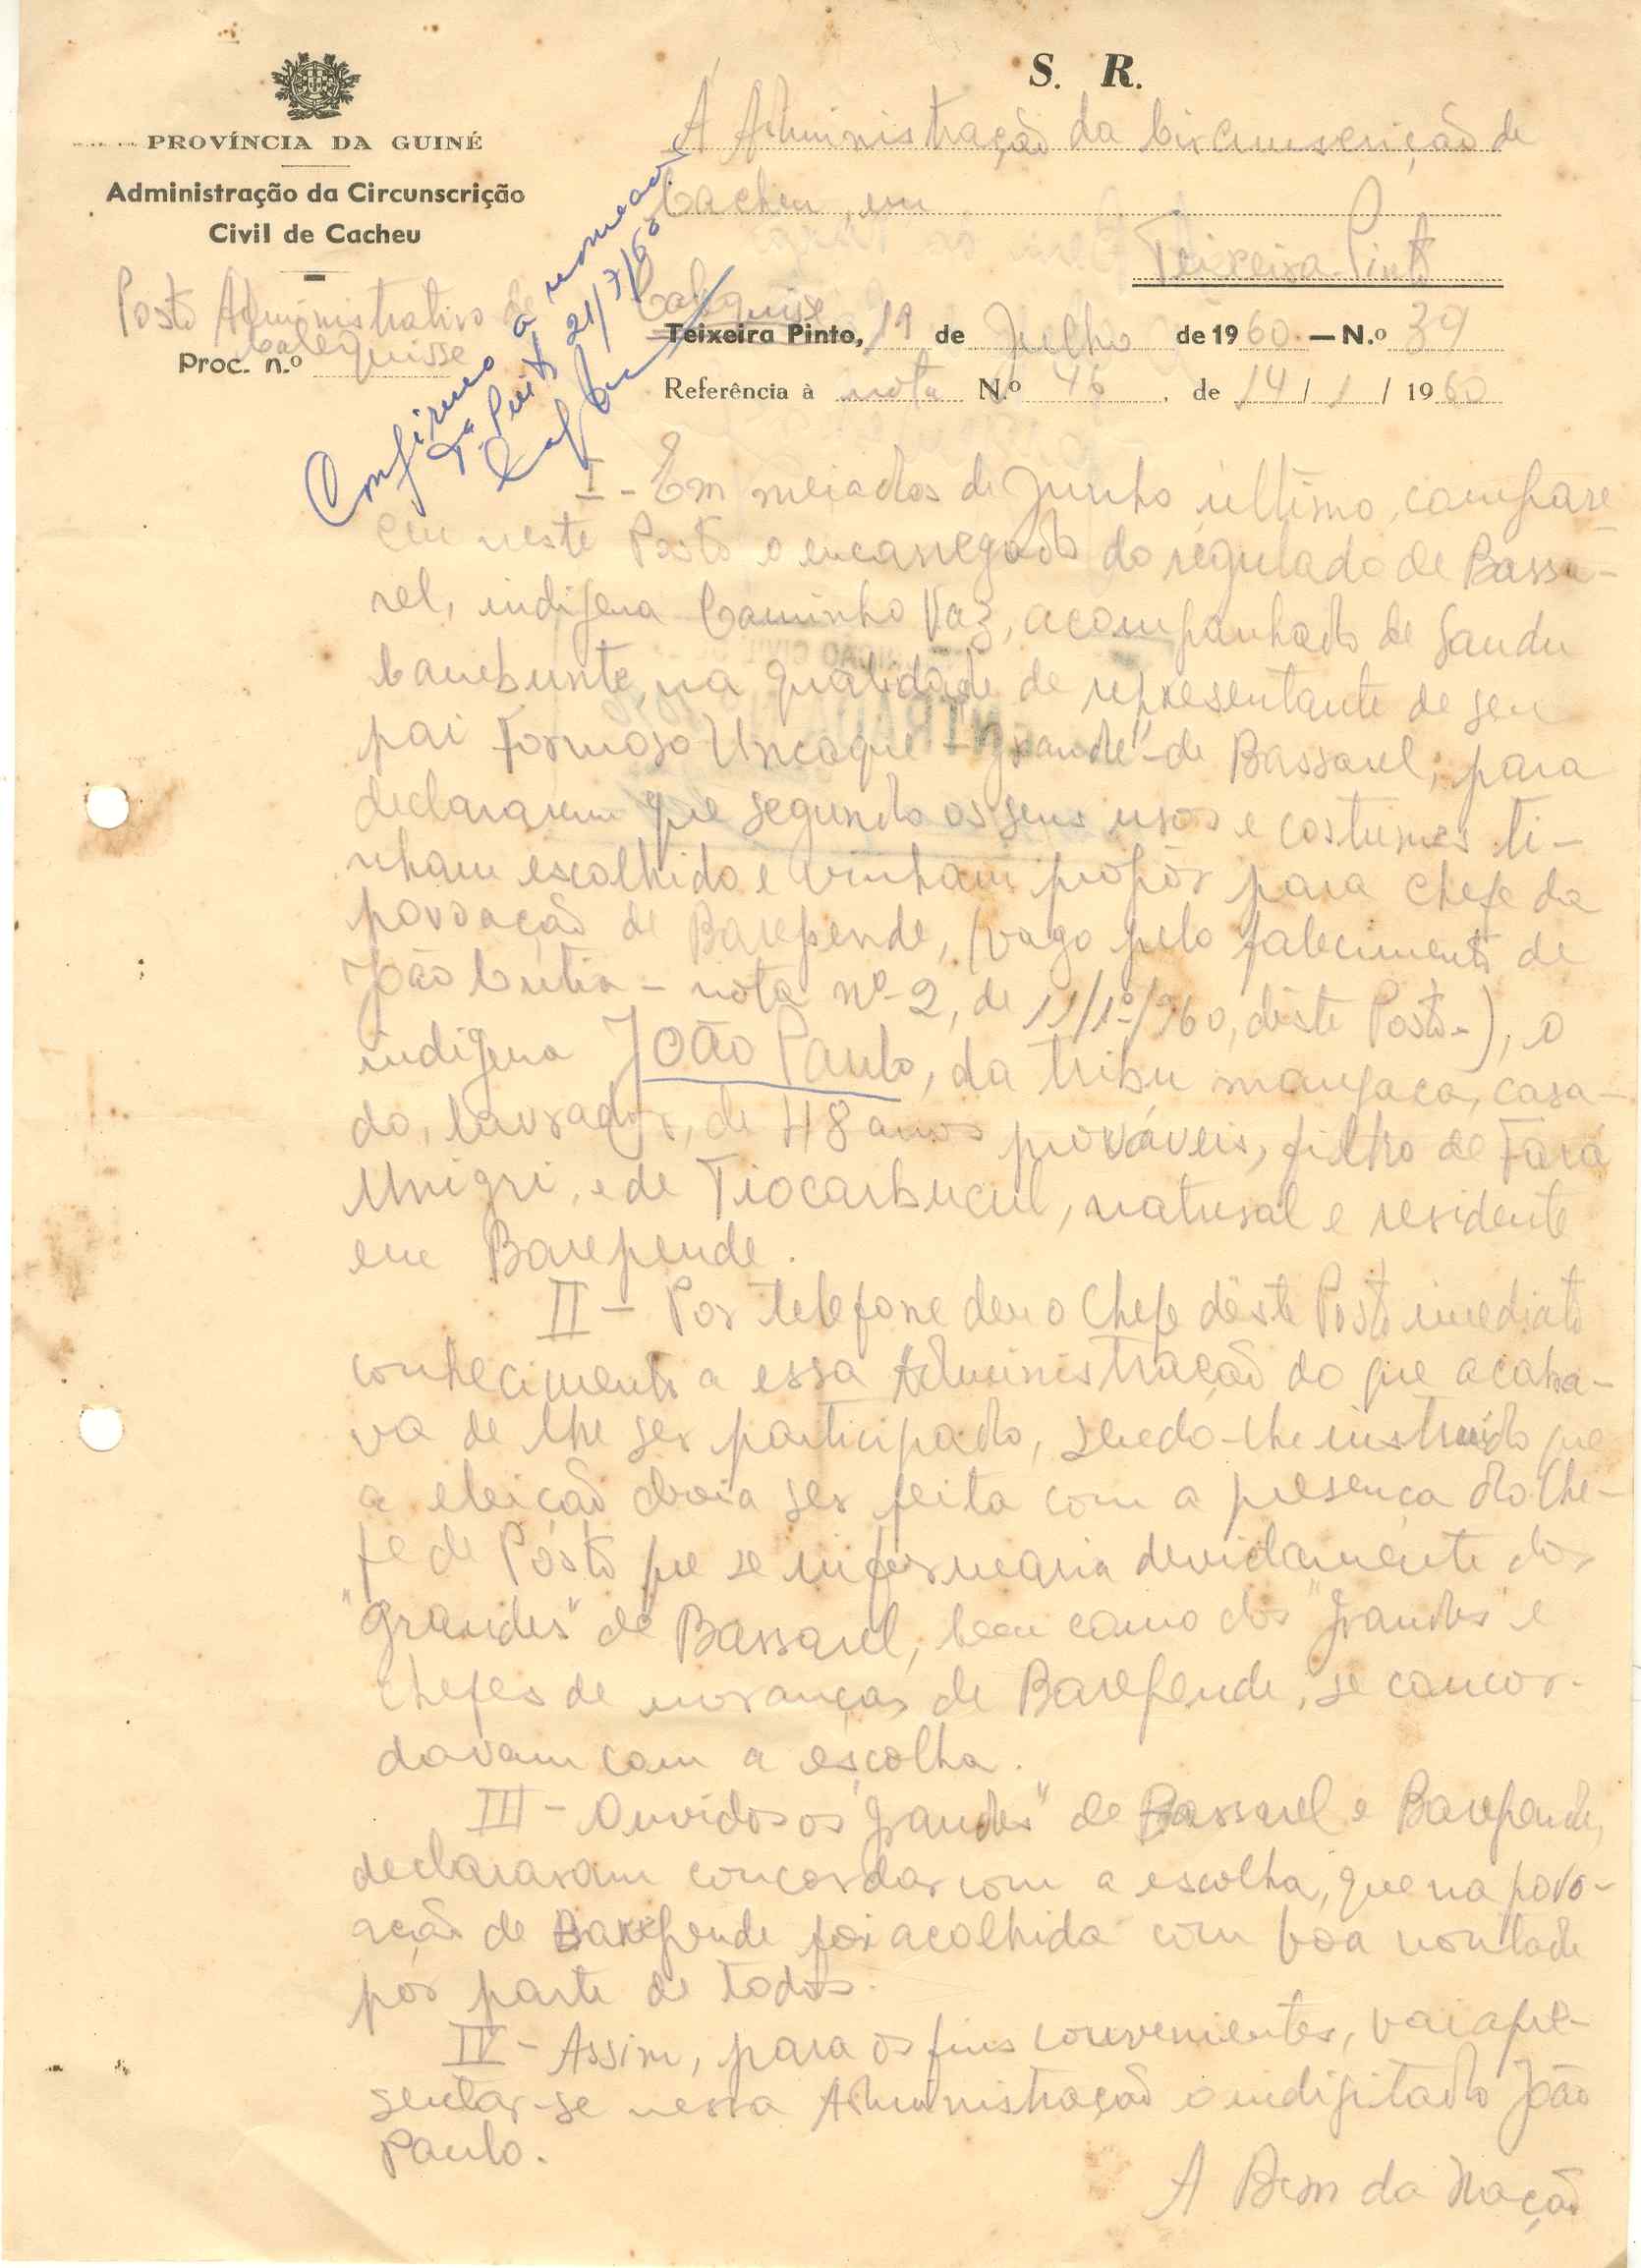 S. R.
PROVÍNCIA DA GUINÉ
Administração da Circunscrição
Civil de Cacheu
Posto Administrativo de
Calequisse
Proc. n.º
À Administração da Circunscrição de
Cacheu, em
Teixeira Pinto
Calequisse
Teixeira Pinto, 19 de Julho de 1960 — N.º 39
Referência à nota N.º 46 . de 14 / 1 / 1960
Confirmo a nomeação
Tª Pinto 21/7/60
I - Em meiados de Junho último, compare
ceu neste Posto o encarregado do regulado de Bassa-
rel, indígena Caminho Vaz, acompanhado de Gandu
Canebunte, na qualidade de representante de seu
pai Formoso Uncaque - "grande" - de Bassarel, para
declararem que segundo os seus usos e costumes ti-
nham escolhido e vinham propôr para chefe da
povoação de Barepende, (vago pelo falecimento de
João - nota nº 2, de 11/1º/960, dêste Posto-), o
indígena João Paulo, da tribu manjaca, casa-
do, lavrador, de 48 anos prováveis, filho de Fará
Unigri, e de Tiocarbucul, natural e residente
em Barepende.
II - Por telefone deu o Chefe dêste Posto imediato
conhecimento a essa Administração do que acaba-
va de lhe ser participado, sendo-lhe instruído que
a eleição devia ser feita com a presença do Che-
fe de Pôsto que se informaria devidamente dos
"grandes" de Bassarel, bem como dos "grandes" e
chefes de moranças de Barepende, se concor-
davam com a escolha.
III - Ouvidos os "grandes" de Bassarel e Barepende,
declararam concordar com a escolha, que na povo-
ação de Barepende foi acolhida com boa vontade
por parte de todos.
IV - Assim, para os fins convenientes, vai apre-
sentar-se nessa Administração o indigitado João
Paulo.
A Bem da Nação